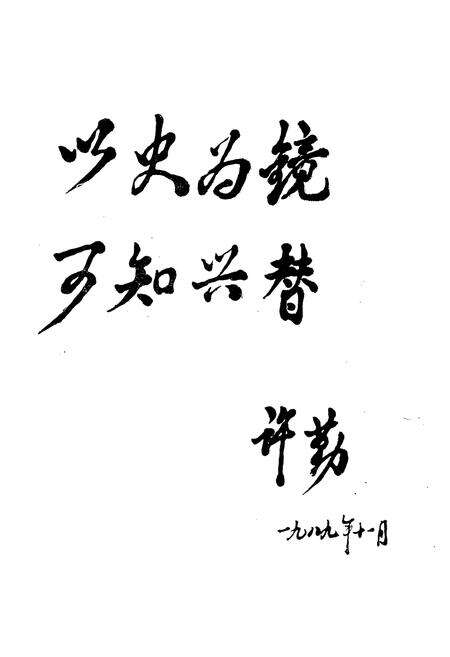 以史为镜
可知兴替
许勤
一九八九年十一月